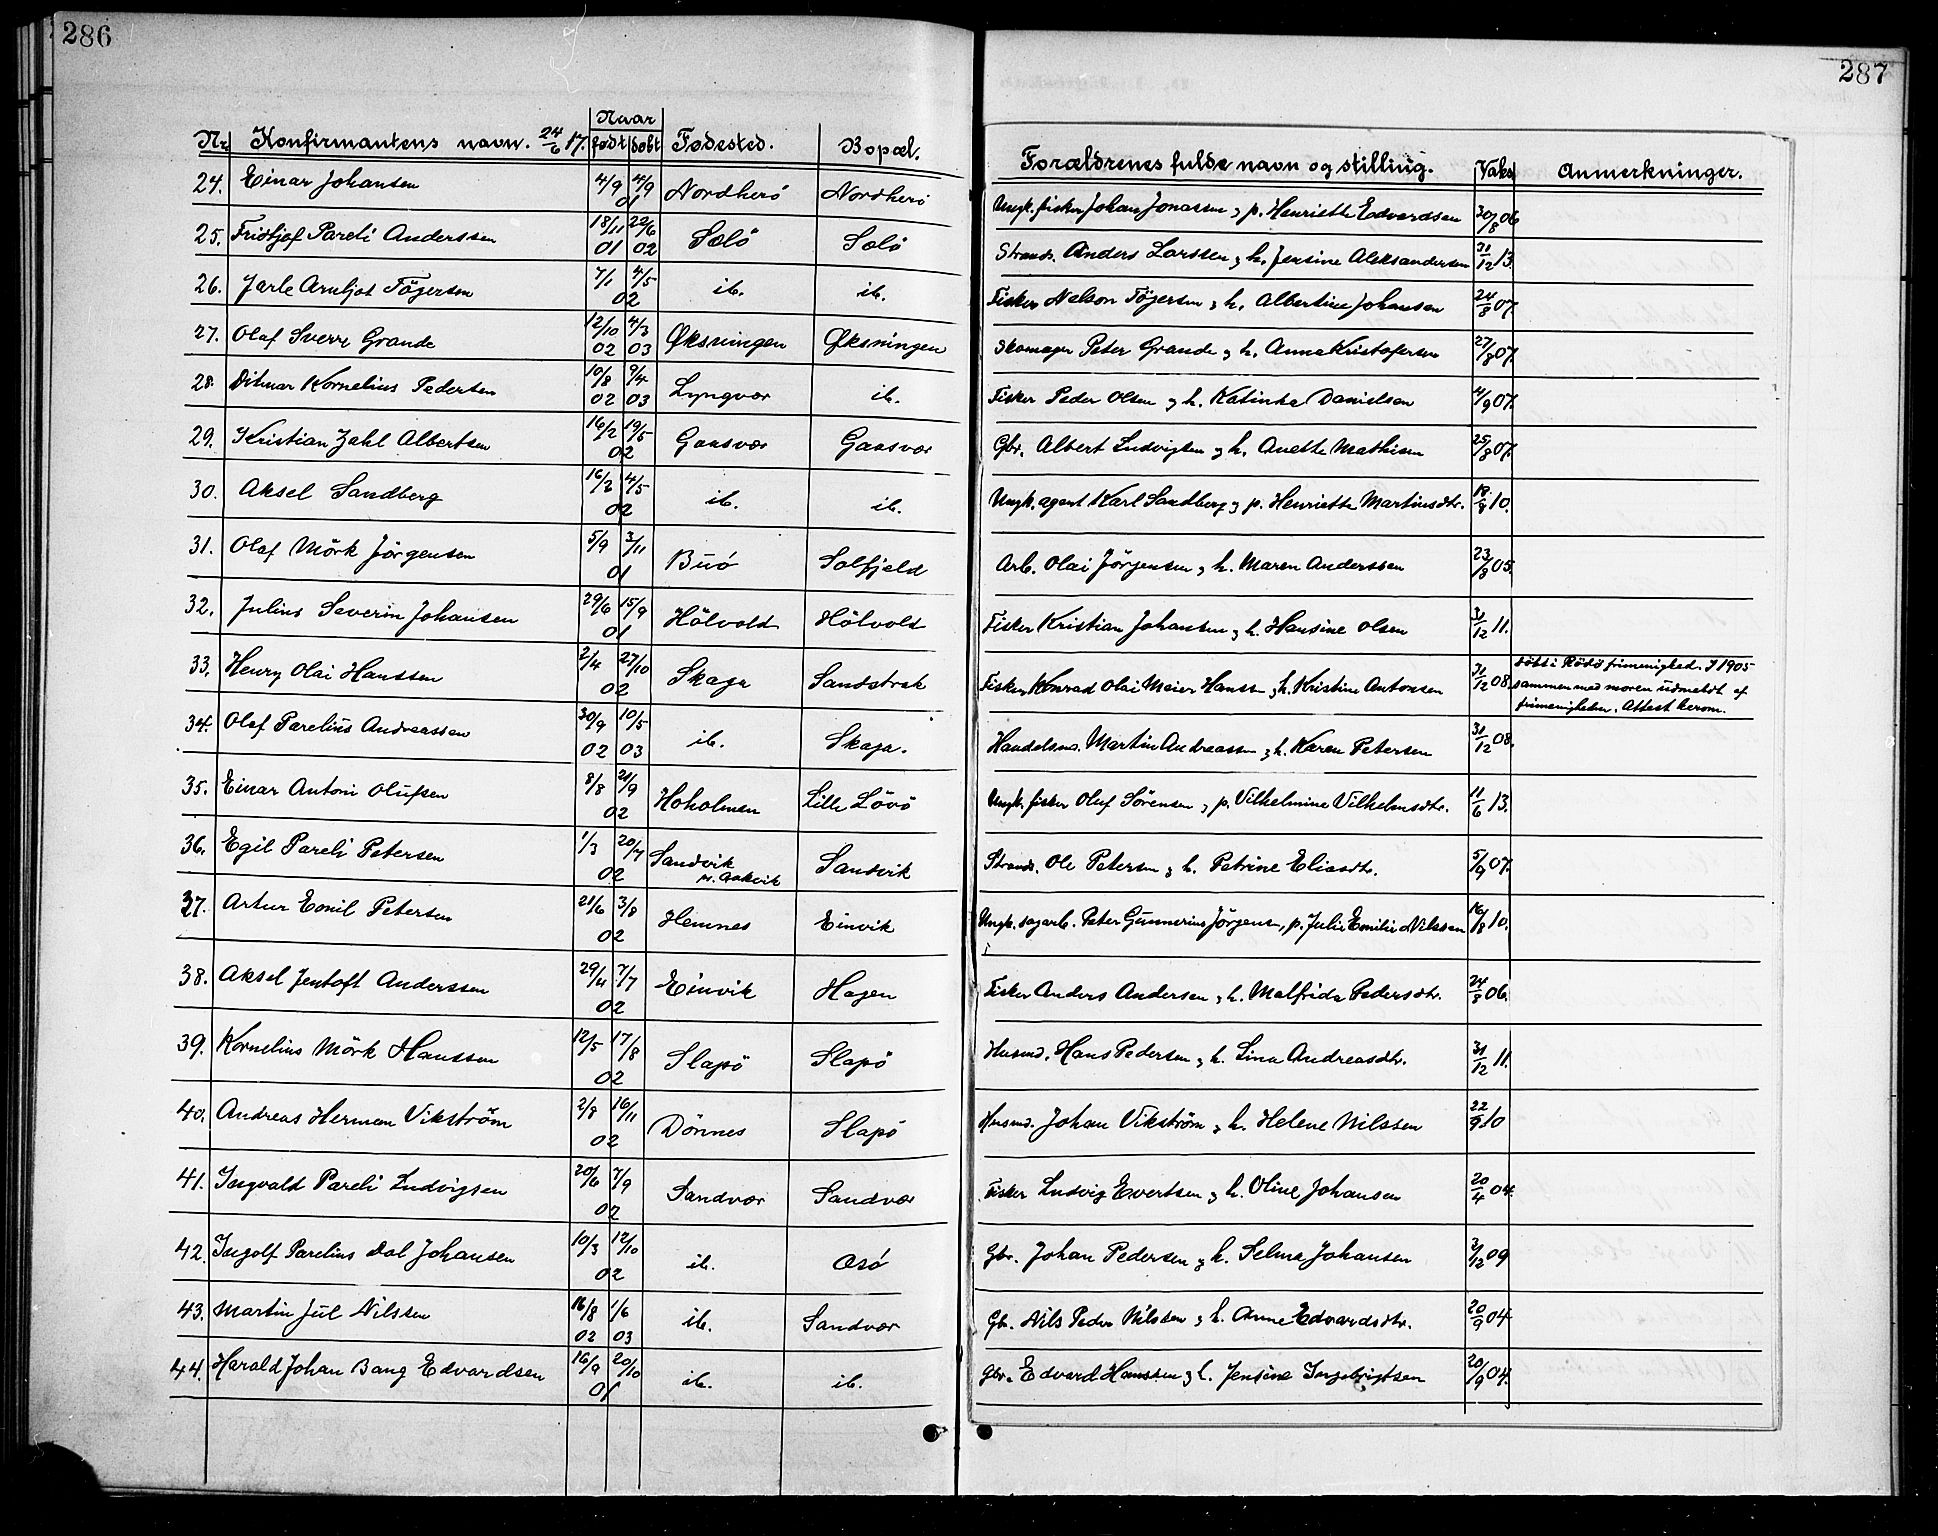 286
Nr. Konfirmantens navn. 24/6 17. Naar født døbt Fødested. Bopæl.
24. Einar Johansen 4/9 4/9 01 Nordherö Nordherö
25. Fridtjof Pareli Anderssen 18/11 01 22/6 02 Solö Solö
26. Jarle Arnljot Tögersen 7/1 4/5 02 ib. ib.
27. Olaf Sverre Grande 12/10 02 4/3 03 Øksningen Øksningen
28. Ditmar Kornelius Pedersen 10/8 02 9/4 03 Lyngvær ib.
29. Kristian Zahl Albertsen 16/2 19/5 02 Gaasvær Gaasvær
30. Aksel Sandberg 16/2 4/5 02 ib. ib.
31. Olaf Mörk Jörgensen 5/9 3/11 01 Buö Solfjeld
32. Julius Severin Johansen 29/6 15/9 01 Hölvold Hölvold
33. Henry Olai Hanssen 2/4 27/10 02 Skaga Sandstrak
34. Olaf Parelius Andreassen 30/9 02 10/5 03 ib. Skaga.
35. Einar Antoni Olufsen 8/8 21/9 02 Hoholmen Lille Lövö
36. Egil Pareli Petersen 1/3 20/7 02 Sandvik Sandvik
37. Artur Emil Petersen 21/6 3/8 02 Hemnes Einvik
38. Aksel Jentoft Anderssen 29/4 7/7 02 Einvik Hagen
39. Kornelius Mörk Hanssen 12/5 17/8 02 Slapö Slapö
40. Andreas Herman Vikström 2/8 16/11 02 Dönnes Slapö
41. Ingvald Pareli Ludvigsen 20/6 7/9 02 Sandvær Sandvær
42. Ingolf Parelius Dal Johansen 10/3 12/10 02 ib. Osö
43. Martin Jul Nilssen 16/8 02 1/6 03 ib. Sandvær
44. Harald Johan Bang Edvardsen 16/9 20/10 01 ib. ib.
287
Forældrenes fulde navn og stilling. Vaks. Anmerkninger.
Ungk. fisker Johan Jonassen og p. Henriette Edvardsen 30/8 06
Strands. Anders Larssen og h. Jensine Aleksandersen 31/12 13.
Fisker Nelson Tögersen og h. Albertine Johansen 24/8 07.
Skomager Peter Grande og h. Anna Kristofersen 27/8 07.
Fisker Peder Olsen og h. Katinka Danielsen 4/9 07.
Gbr. Albert Ludvigsen og h. Anette Mathisen 25/8 07.
Ungk. agent Karl Sandberg og p. Henriette Martinsdtr. 18/8 10.
Arb. Olai Jörgensen og h. Maren Anderssen 23/8 05.
Fisker Kristian Johansen og h. Hansine Olsen 31/12 11.
Fisker Konrad Olai Meier Hanssen og h. Kristine Antonsen 31/12 08. döbt i Rödö frimenighed. I 1905
sammen med moren udmeldt af
frimenigheden. Attest herom.
Handelsm. Martin Andreassen og h. Karen Petersen 31/12 08.
Ungk. fisker Oluf Sörensen og p. Vilhelmine Vilhelmsdtr. 11/6 13.
Strands. Ole Petersen og h. Petrine Eliasdtr. 5/9 07.
Ungk. sagarb. Peter Gunnerius Jörgensen, p. Julie Emilie Nilssen 16/8 10.
Fisker Anders Andersen og h. Malfrida Pedersdtr. 24/8 06.
Husmd. Hans Pedersen og h. Lina Andreasdtr. 31/12 11.
Husmd. Johan Vikström og h. Helene Nilssen 22/9 10
Fisker Ludvig Evertsen og h. Oline Johansen 20/4 04.
Gbr. Johan Pedersen og h. Selma Johansen 3/12 09
Gb. Nils Peder Nilssen og h. Anne Edvardsdtr. 20/9 04
Gbr. Edvard Hanssen og h. Jensine Ingebrigtsen 20/9 04.